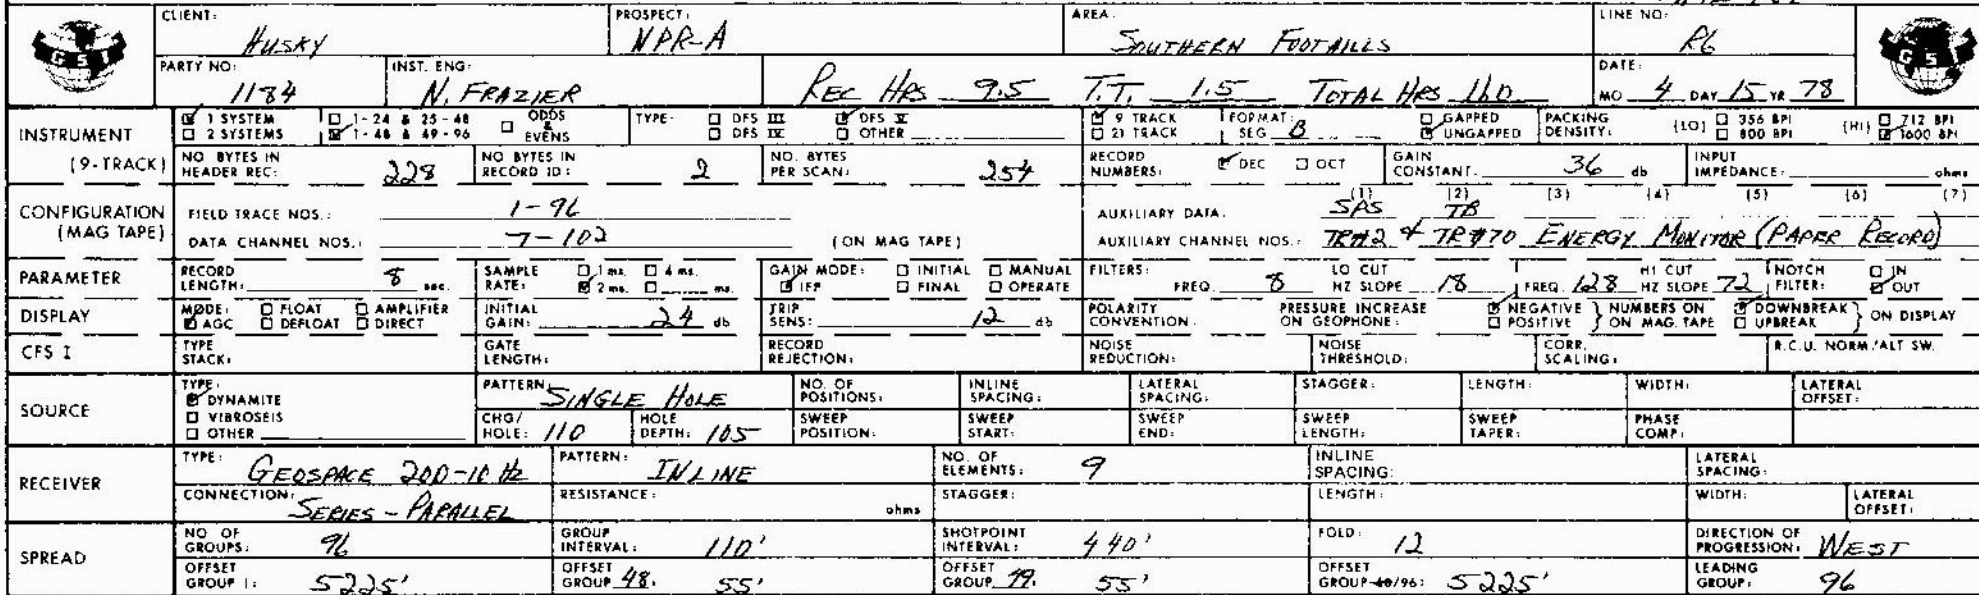 CLIENT: HUSKY PROSPECT: NPR-A AREA: SOUTHERN FOOTHILLS LINE NO: R6
GSI GSI
PARTY NO: 1184 INST. ENG: N. FRAZIER REC HRS 9.5 T.T. 1.5 TOTAL HRS 11.0 DATE: MO 4 DAY 15 YR 78
INSTRUMENT (9-TRACK) 1 SYSTEM 1-24 & 25-48 ODDS & EVENS TYPE: DFS III DFS V 9 TRACK FORMAT: SEG B GAPPED PACKING DENSITY: (LO) 356 BPI (HI) 712 BPI
2 SYSTEMS 1-48 & 49-96 DFS IV OTHER 21 TRACK UNGAPPED 800 BPI 1600 BPI
NO BYTES IN HEADER REC: 228 NO BYTES IN RECORD ID: 2 NO. BYTES PER SCAN: 254 RECORD NUMBERS: DEC OCT GAIN CONSTANT. 36 db INPUT IMPEDANCE: ohms
CONFIGURATION (MAG TAPE) FIELD TRACE NOS.: 1-96 AUXILIARY DATA. (1) SPS (2) TB (3) (4) (5) (6) (7)
DATA CHANNEL NOS.: 7-102 (ON MAG TAPE) AUXILIARY CHANNEL NOS.: TR#2 & TR#70 ENERGY MONITOR (PAPER RECORD)
PARAMETER RECORD LENGTH: 8 sec. SAMPLE RATE: 1 ms. 4 ms. 2 ms. ms. GAIN MODE: INITIAL MANUAL IFP FINAL OPERATE FILTERS: FREQ. 8 LO CUT HZ SLOPE 18 FREQ. 128 HI CUT HZ SLOPE 72 NOTCH FILTER: IN OUT
DISPLAY MODE: FLOAT AMPLIFIER AGC DEFLOAT DIRECT INITIAL GAIN: 24 db TRIP SENS: 12 db POLARITY CONVENTION. PRESSURE INCREASE ON GEOPHONE: NEGATIVE POSITIVE NUMBERS ON ON MAG. TAPE DOWNBREAK UPBREAK ON DISPLAY
CFS I TYPE STACK: GATE LENGTH: RECORD REJECTION: NOISE REDUCTION: NOISE THRESHOLD: CORR. SCALING: R.C.U. NORM./ALT SW.
SOURCE TYPE: DYNAMITE VIBROSEIS OTHER PATTERN: SINGLE HOLE NO. OF POSITIONS: INLINE SPACING: LATERAL SPACING: STAGGER: LENGTH: WIDTH: LATERAL OFFSET:
CHG/HOLE: 110 HOLE DEPTH: 105 SWEEP POSITION: SWEEP START: SWEEP END: SWEEP LENGTH: SWEEP TAPER: PHASE COMP:
RECEIVER TYPE: GEOSPACE 20D-10 Hz PATTERN: INLINE NO. OF ELEMENTS: 9 INLINE SPACING: LATERAL SPACING:
CONNECTION: SERIES - PARALLEL RESISTANCE: ohms STAGGER: LENGTH: WIDTH: LATERAL OFFSET:
SPREAD NO OF GROUPS: 96 GROUP INTERVAL: 110' SHOTPOINT INTERVAL: 440' FOLD: 12 DIRECTION OF PROGRESSION: WEST
OFFSET GROUP 1: 5225' OFFSET GROUP 48: 55' OFFSET GROUP 49: 55' OFFSET GROUP 48/96: 5225' LEADING GROUP: 96